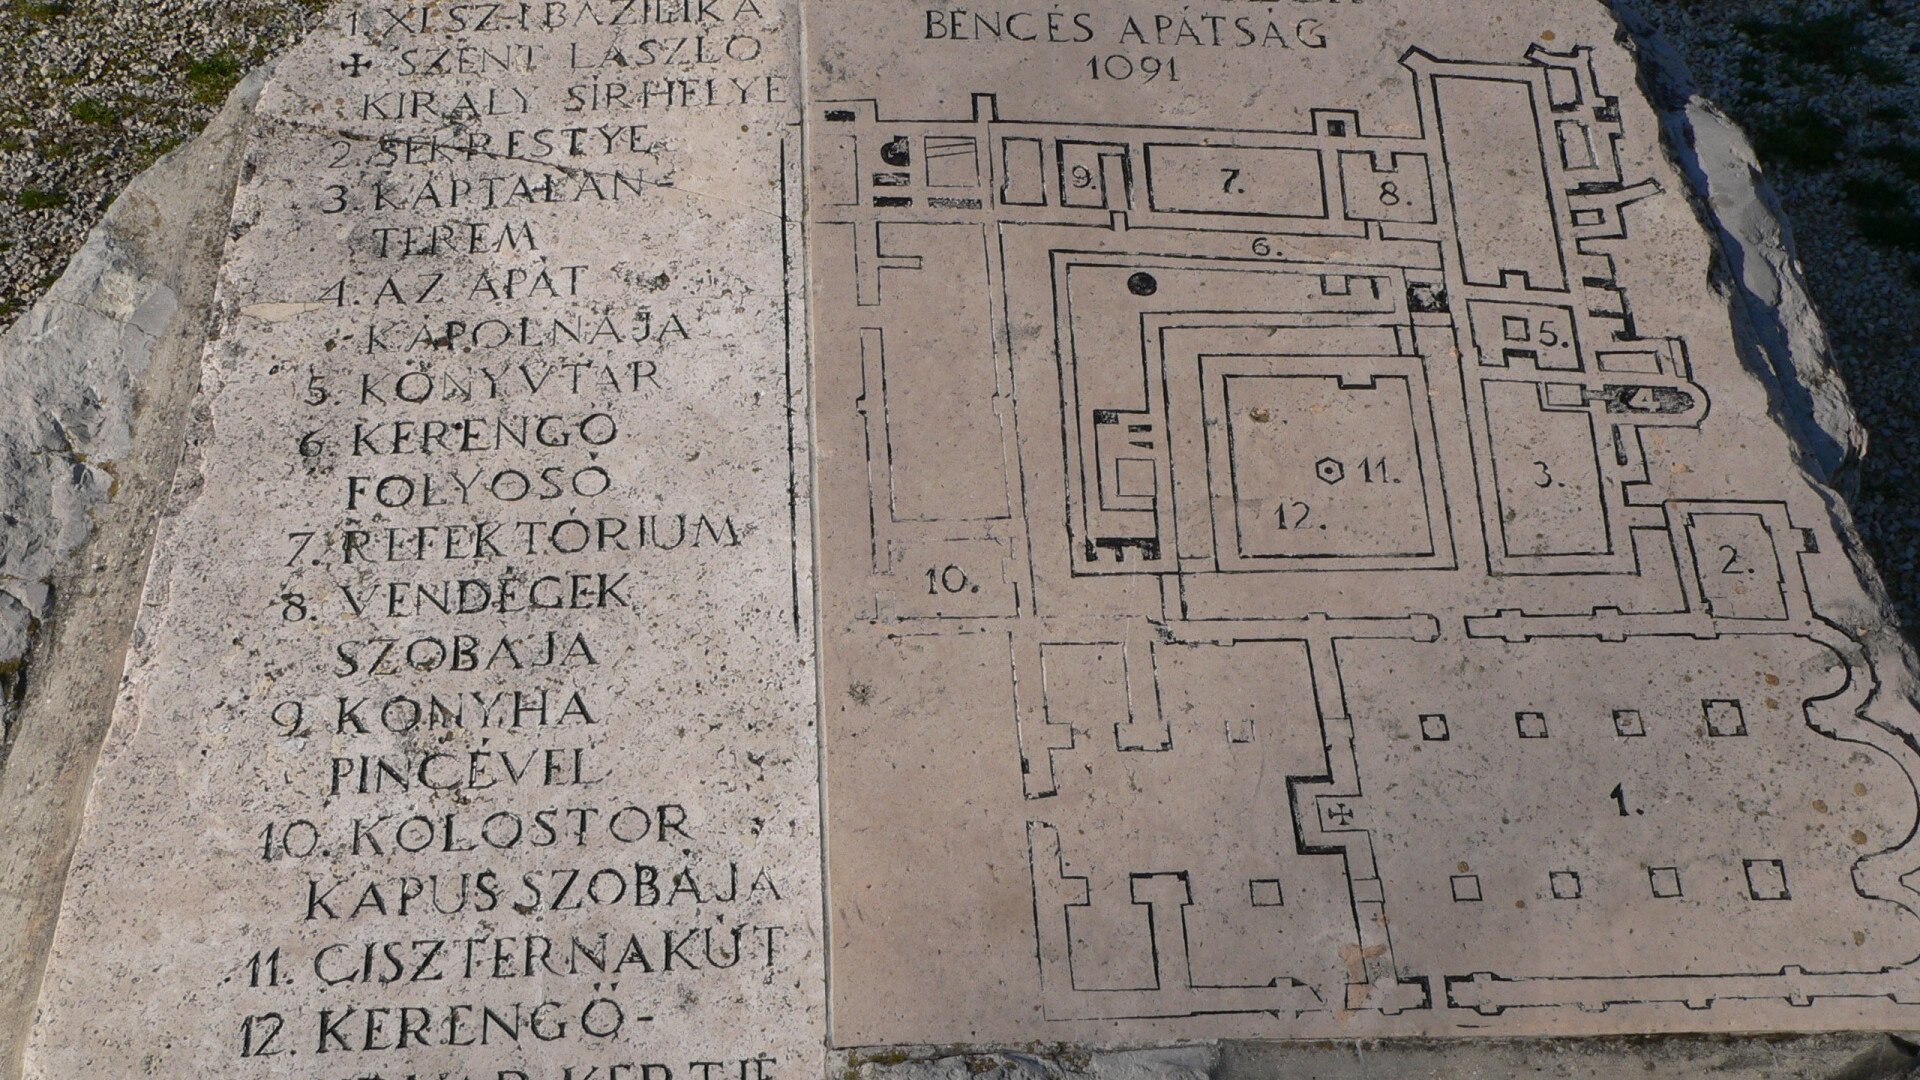 1. XI. SZ-I BAZILIKA
✠ SZENT LÁSZLÓ
KIRÁLY SÍRHELYE
2. SEKRESTYE
3. KÁPTALAN-
TEREM
4. AZ APÁT
KÁPOLNÁJA
5. KÖNYVTÁR
6. KERENGŐ
FOLYOSÓ
7. REFEKTÓRIUM
8. VENDÉGEK
SZOBÁJA
9. KONYHA
PINCÉVEL
10. KOLOSTOR
KAPUS SZOBÁJA
11. CISZTERNAKÚT
12. KERENGŐ-
UDVAR KERTJE
BENCÉS APÁTSÁG
1091
9.
7.
8.
6.
5.
4
11.
3.
12.
2.
10.
1.